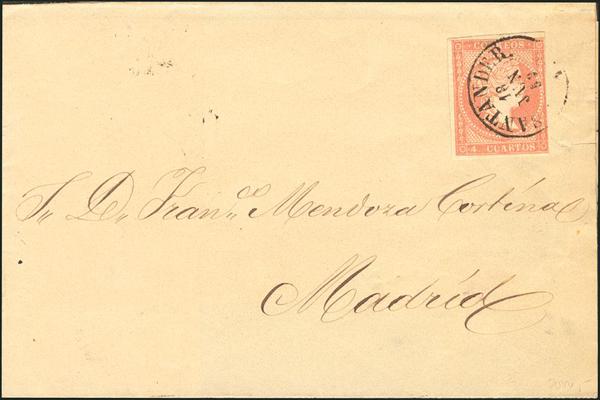 CORREOS
SANTANDER.
18
JUN
59
4 CUARTOS
S. D. Fran.co Mendoza Cortina
Madrid